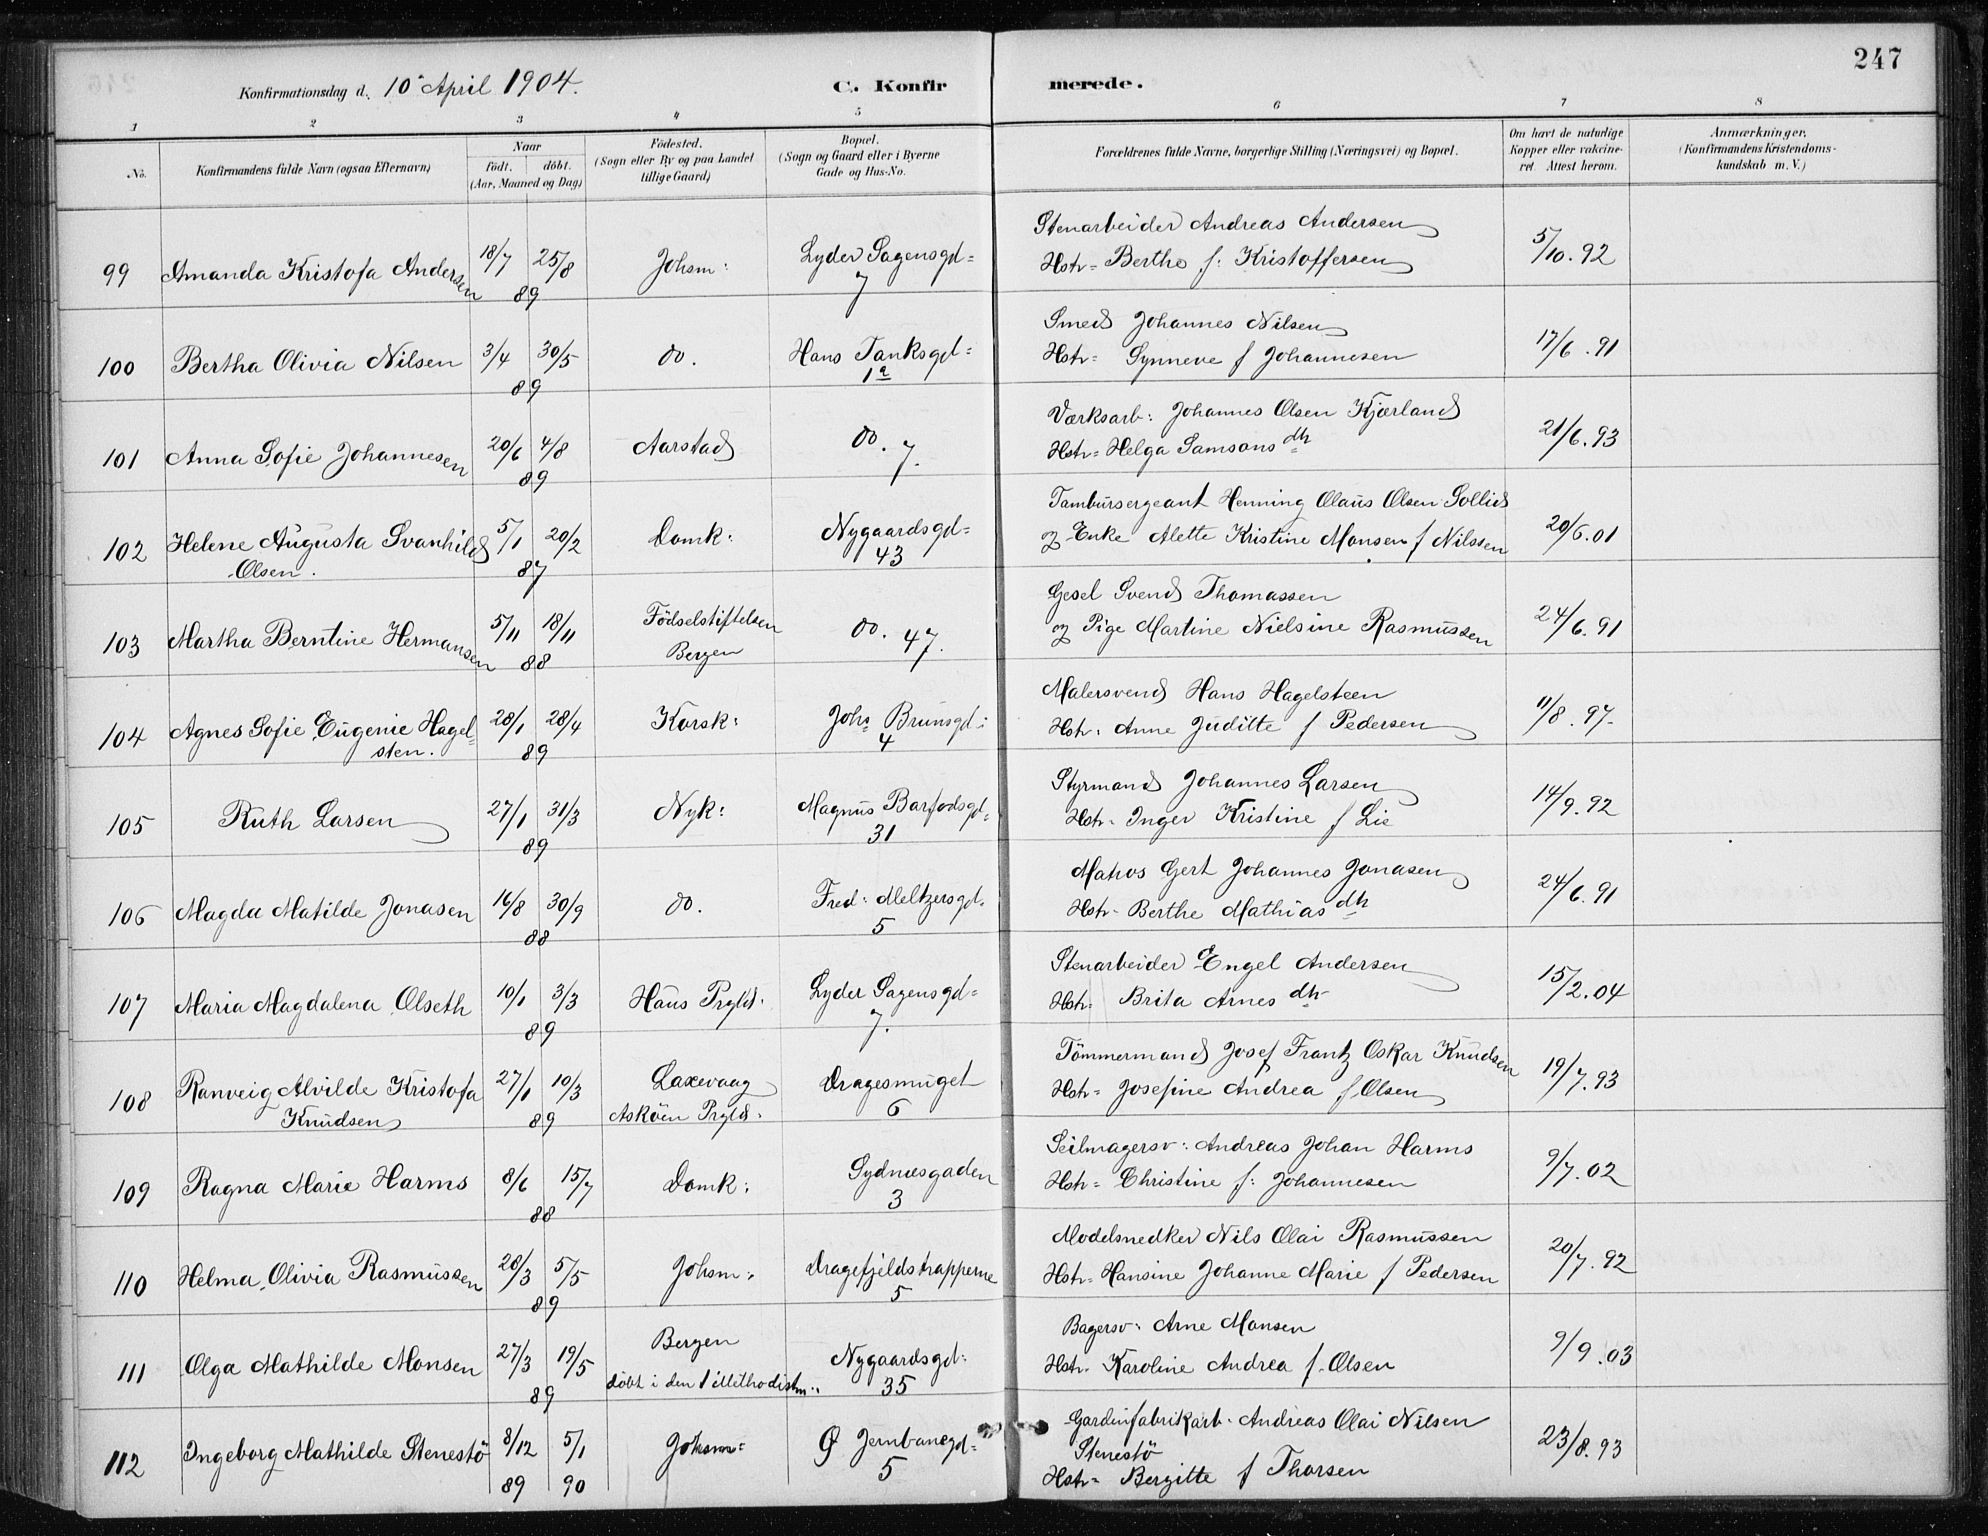 247
Konfirmationsdag d. 10 April 1904.
C. Konfirmerede.
1 2 3 4 5 6 7 8
No.
Konfirmandens fulde Navn (ogsaa Efternavn)
Naar
födt. döbt.
(Aar, Maaned og Dag)
Födested.
(Sogn eller By og paa Landet
tillige Gaard)
Bopæl.
(Sogn og Gaard eller i Byerne
Gade og Hus-No.
Forældrenes fulde Navne, borgerlige Stilling (Næringsvei) og Bopæl.
Om havt de naturlige
Kopper eller vakcine-
ret. Attest herom.
Anmærkninger.
(Konfirmandens Kristendoms-
kundskab m. V.)
99 Amanda Kristofa Andersen 18/7 25/8 89 Johsm: Lyder Sagensgd= 7
Stenarbeider Andreas Andersen
Hstr= Berthe f: Kristoffersen 5/10.92
100 Bertha Olivia Nilsen 3/4 30/5 89 do. Hans Tanksgd= 1a
Smed Johannes Nilsen
Hstr= Synneve f Johannesen 17/6.91
101 Anna Sofie Johannesen 20/6 4/8 89 Aarstad do. 7.
Værksarb: Johannes Olsen Kjærland
Hstr= Helga Samsons dh 21/6.93
102 Helene Augusta Svanhild
Olsen. 5/1 20/2 87 Domk: Nygaardsgd= 43
Tambursergeant Henning Olaus Olsen Sollid
og Enke Alette Kristine Monsen f Nilssen 20/6.01
103 Martha Berntine Hermansen 5/11 18/11 88 Födselstiftelsen
Bergen do. 47.
Gesel Svend Thomassen
og Pige Martine Nielsine Rasmussen 24/6.91
104 Agnes Sofie Eugenie Hagel=
sten. 28/1 28/4 89 Korsk: Johs Brunsgd: 4
Malersvend Hans Hagelsteen
Hstr: Anne Juditte f Pedersen 11/8.97.
105 Ruth Larsen 27/1 31/3 89 Nyk: Magnus Barfodsgd= 31
Styrmand Johannes Larsen
Hstr- Inger Kristine f Lie 14/9.92
106 Magda Matilde Jonasen 16/8 30/9 88 do. Fred: Meltzersgd. 5
Matros Gert Johannes Jonasen
Hstr- Berthe Mathias dh 24/6.91
107 Maria Magdalena Olseth 10/1 3/3 89 Haus Prgld. Lyder Sagensgd= 7.
Stenarbeider Engel Andersen
Hstr: Brita Arnes dh 15/2.04
108 Ranveig Alvilde Kristofa
Knudsen 27/1 10/3 89 Laxevaag
Asköen Prgld. Dragesmuget 6
Tömmermand Josef Frantz Oskar Knudsen
Hstr= Josefine Andrea f Olsen 19/7.93
109 Ragna Marie Harms 8/6 15/7 88 Domk: Sydnesgaden 3
Seilmagersv: Andreas Johan Harms
Hstr= Christine f: Johannesen 9/7.02
110 Helma Olivia Rasmussen 28/3 5/5 89 Johsm: Dragefjeldstrapperne 5
Modelsnedker Nils Olai Rasmussen
Hstr= Hansine Johanne Marie f Pedersen 20/7.92
111 Olga Mathilde Monsen 27/3 19/5 89 Bergen
döbt i den Methodistm: Nygaardsgd: 35
Bagersv: Arne Monsen
Hstr. Karoline Andrea f. Olsen 9/9.03
112 Ingeborg Mathilde Stenestö 8/12 5/1 89 90 Johsm= Ø Jernbanegd= 5
Gardinfabrikarb. Andreas Olai Nilsen
Stenestö
Hstr= Bergitte f Thorsen 23/8.93